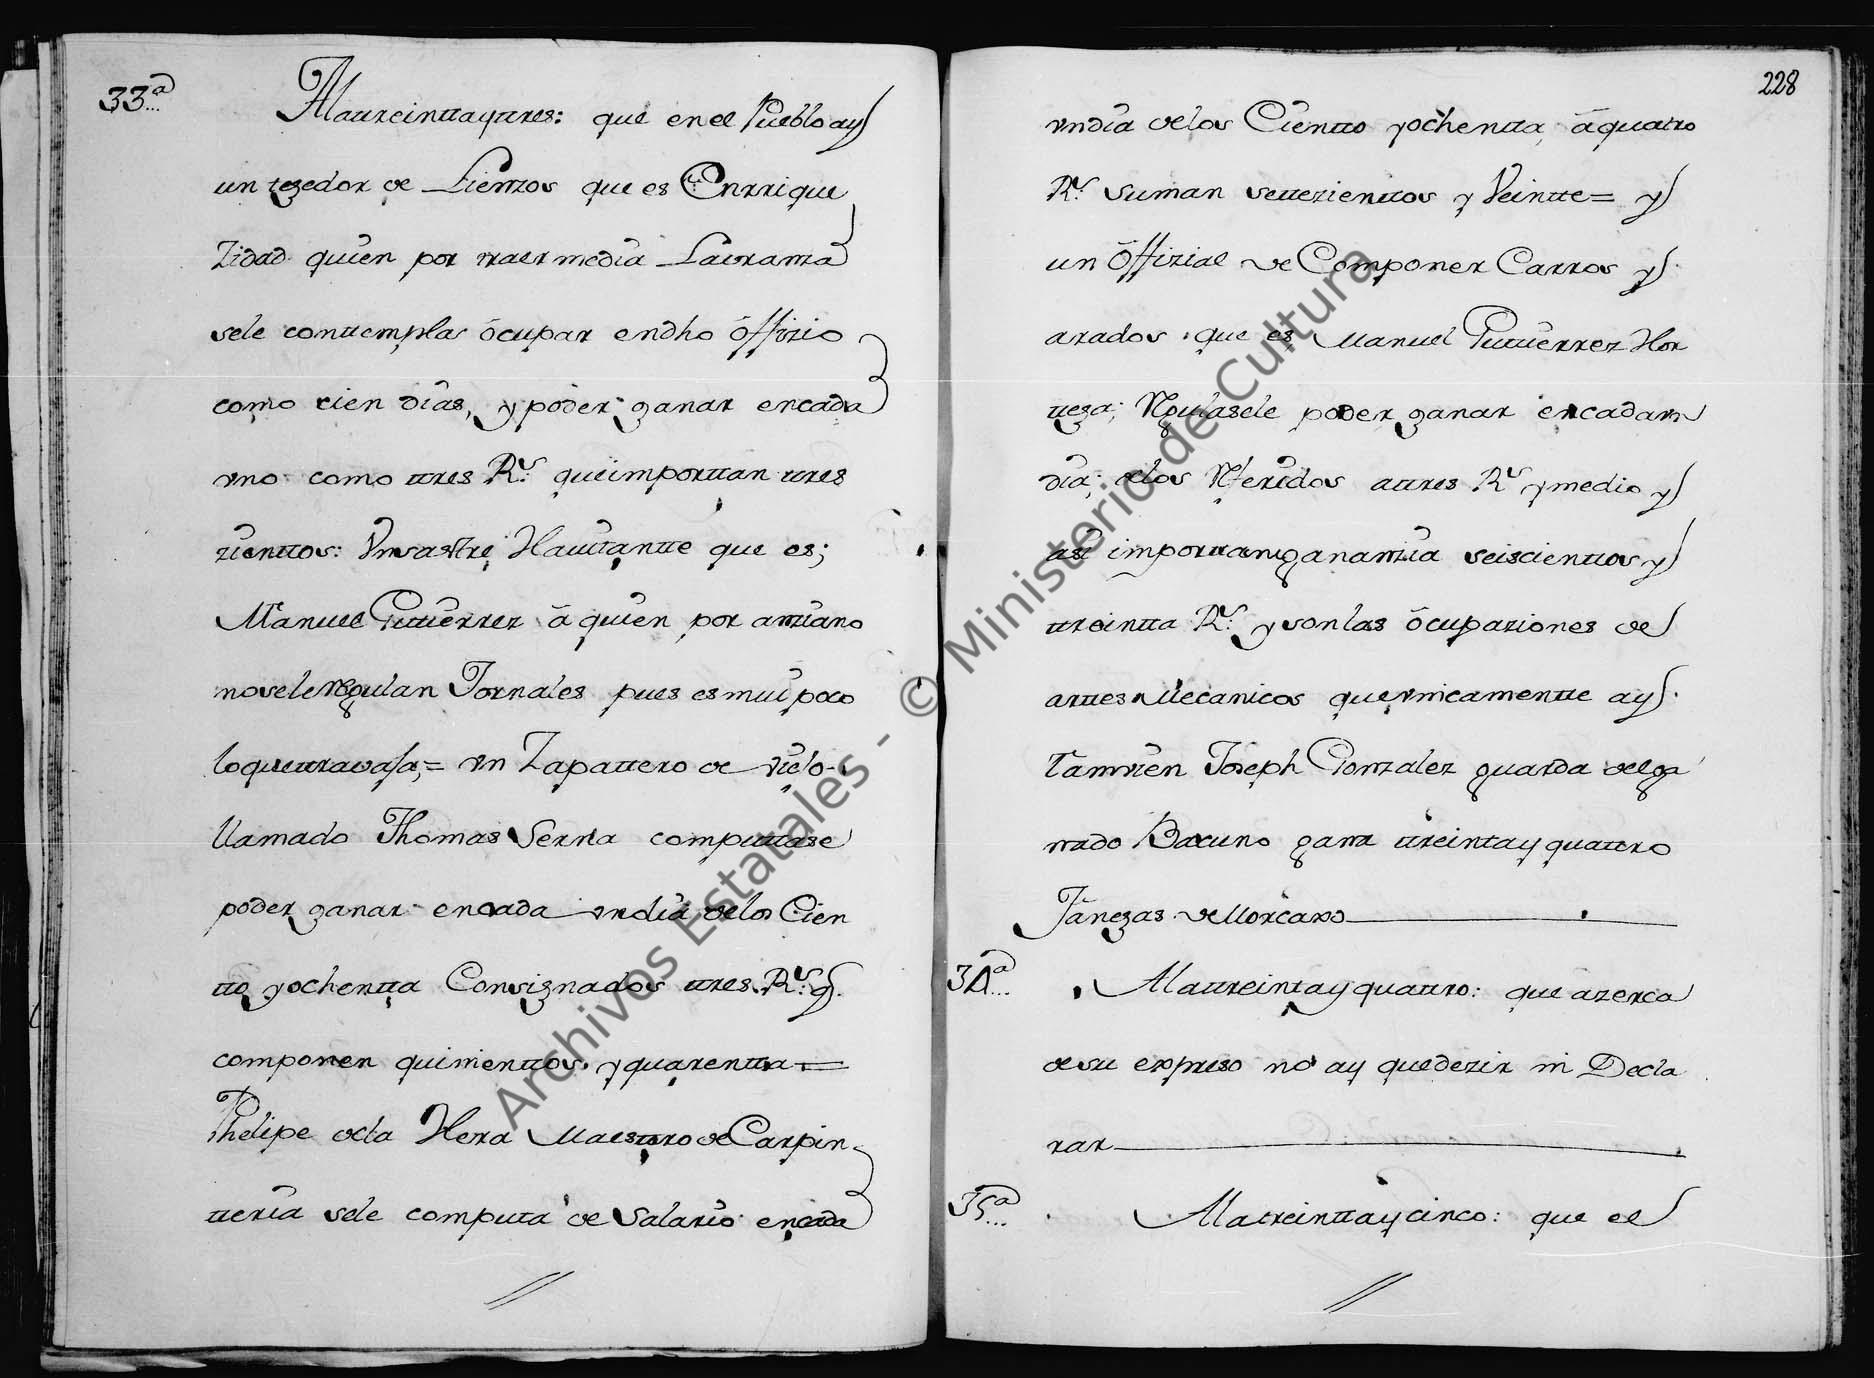 33.ª
Alattreinttaytttres: que en el Pueblo ay
un tegedor de Lienzos que es Enrrique
Zidad quien por traer media Lavranza
sele conttempla ócupar endho óffizio
como cien dias, y poder ganar encada
vno como ttres R.s que importtan ttres
zienttos: Vn sastre Havitantte que es;
Manuel Guttierrez á quien por anziano
nosele regulan Jornales pues es mui poco
loquettravaja,= vn Zapattero de viejo
llamado Thomas Serna computtase
poder ganar encada vndia delos Cien
tto yochentta Consignados ttres R.s q.
componen quinienttos y quarentta=
Phelipe dela Hera Maestro de Carpin
tteria sele computa de Salario encada
228
vndia delos Cientto yochentta, á quatro
R.s suman settezienttos y Veintte= y
un óffizial de Componer Carros y
arados que es Manuel Guttierrez Hor
ttega; Regulasele poder ganar encada vn
dia; delos Referidos attres R.s y medio y
asi importtan su gananzia seiscienttos y
ttreintta R.s y son las ócupaziones de
arttes Mecanicos que vnicamentte ay
Tamvien Joseph Gonzalez guarda del ga
nado Bacuno gana ttreinta y quattro
fánegas de Morcaxo
34.ª
Alattreinta y quattro: que azerca
de su expreso no ay que dezir ni Decla
rar
35.ª
Alatreinttay cinco: que el
Archivos Estatales - © Ministerio de Cultura